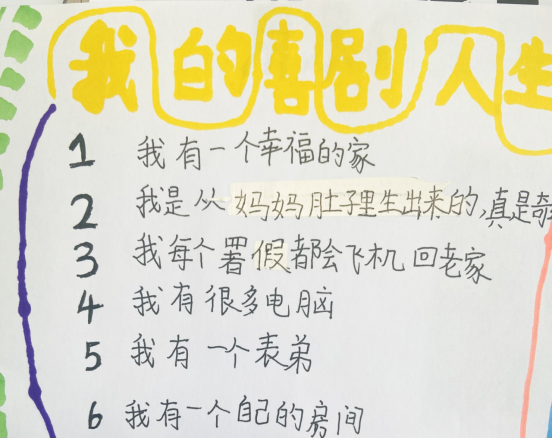 我的喜剧人生
1 我有一个幸福的家
2 我是从妈妈肚子里生出来的,真是奇
3 我每个署假都会飞机回老家
4 我有很多电脑
5 我有一个表弟
6 我有一个自己的房间